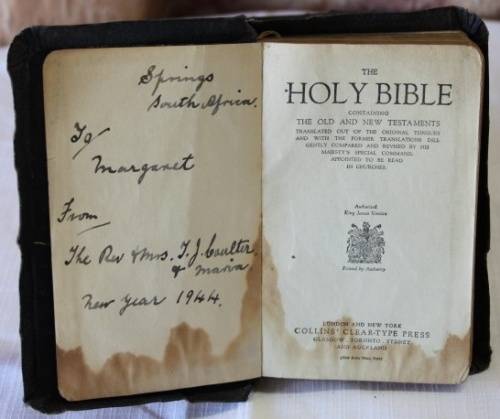 Springs
South Africa.
To/
Margaret
From/
The Rev & Mrs. T. J. Coulter.
& Maria
New Year 1944.
THE
HOLY BIBLE
CONTAINING
THE OLD AND NEW TESTAMENTS
TRANSLATED OUT OF THE ORIGINAL TONGUES
AND WITH THE FORMER TRANSLATIONS DILI-
GENTLY COMPARED AND REVISED BY HIS
MAJESTY'S SPECIAL COMMAND
APPOINTED TO BE READ
IN CHURCHES
Authorized
King James Version
Printed by Authority
LONDON AND NEW YORK
COLLINS' CLEAR-TYPE PRESS
GLASGOW TORONTO SYDNEY
AND AUCKLAND